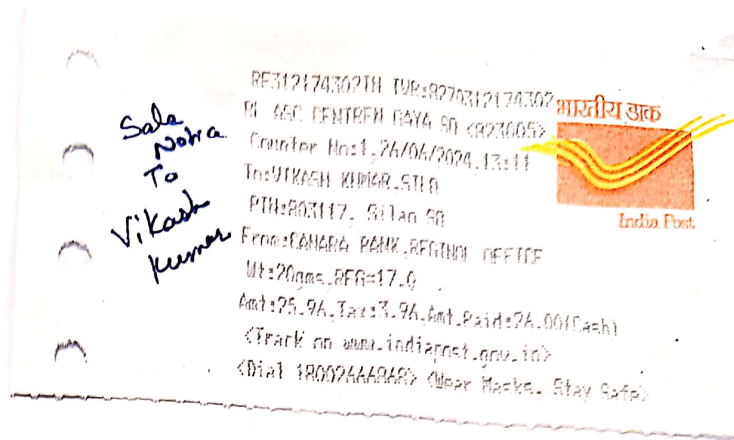 Sale
Notice
To
Vikash
Kumar
RF312174302IN IVR:8270312174302
RL ASC CENTREN GAYA SO <823005>
Counter No:1,26/06/2024,13:11
To:VIKASH KUMAR,SILO
PIN:803117, Silao SO
From:CANARA BANK,REGINOL OFFICE
Wt:20gms,REG=17.0
Amt:25.96,Tax:3.96,Amt.Paid:26.00(Cash)
<Track on www.indiapost.gov.in>
<Dial 18002666868> <Wear Masks, Stay Safe>
भारतीय डाक
India Post